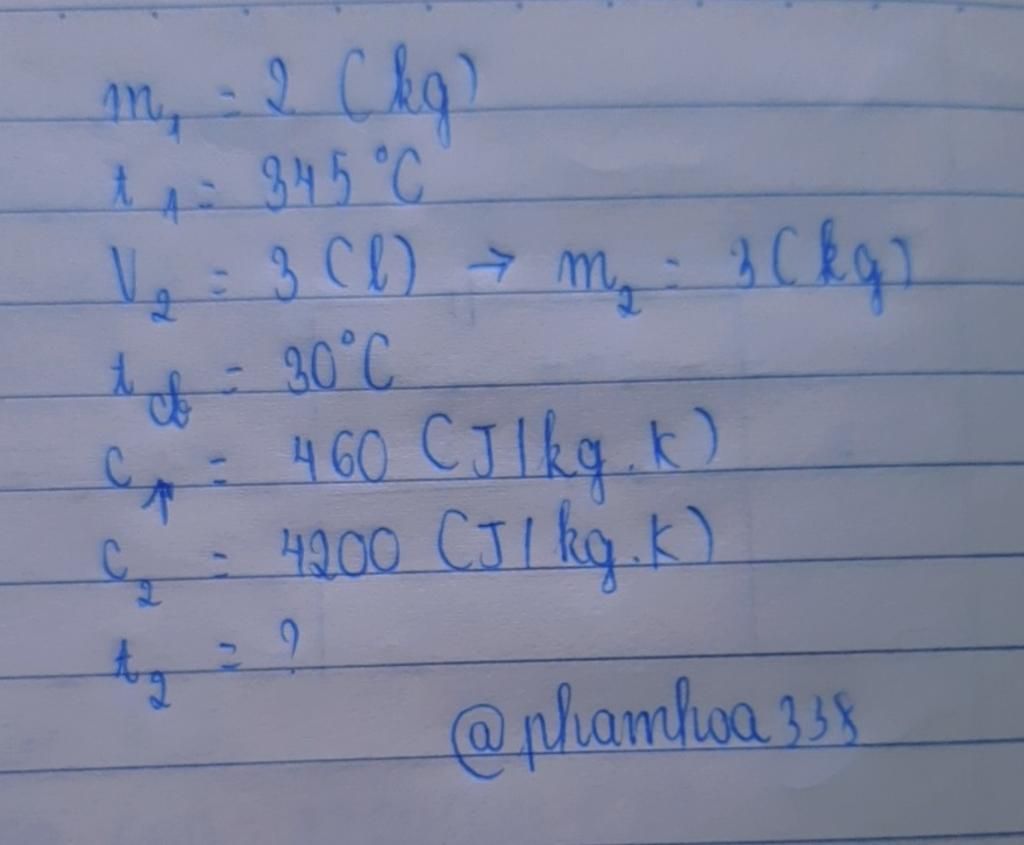 m₁ = 2 (kg)
t₁ = 345°C
V₂ = 3 (l) → m₂ = 3 (kg)
t cb = 30°C
c₁ = 460 (J/kg.K)
c₂ = 4200 (J/kg.K)
t₂ = ?
@phamhoa338